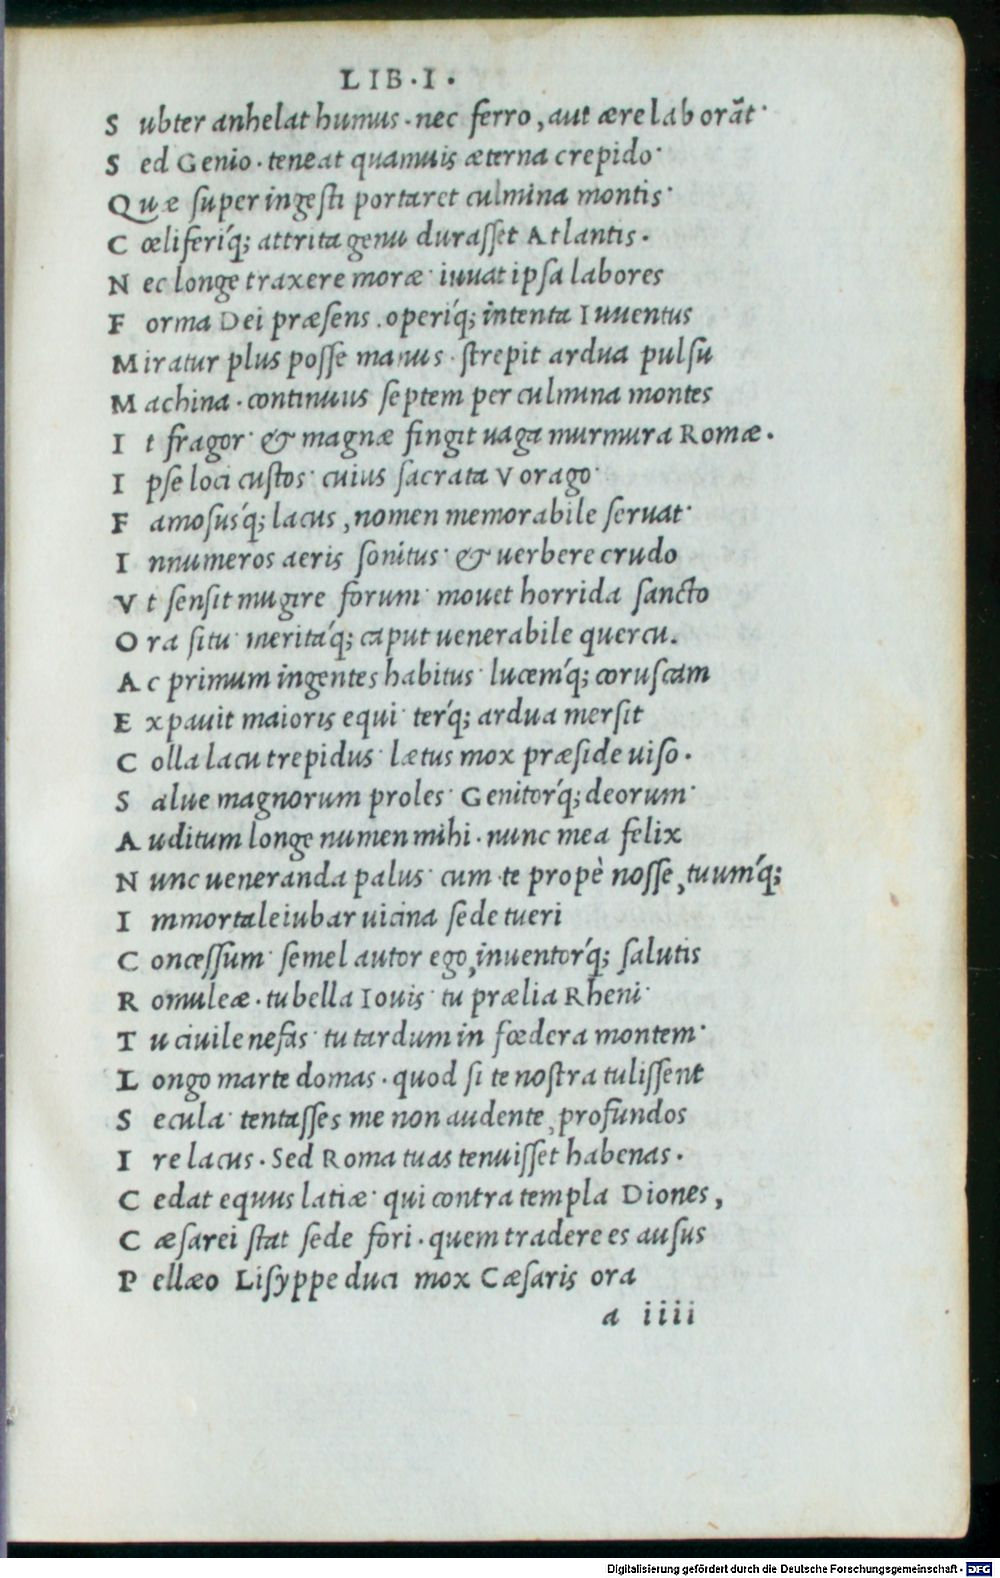 LIB·I·
S ubter anhelat humus · nec ferro, aut ære laborãt·
S ed Genio · teneat quamuis æterna crepido·
Q uæ super ingesti portaret culmina montis·
C œliferiq́; attrita genu durasset Atlantis.
N ec longe traxere moræ· iuuat ipsa labores
F orma Dei præsens . operiq́; intenta Iuuentus
M iratur plus posse manus · strepit ardua pulsu
M achina · continuus septem per culmina montes
I t fragor· & magnæ fingit uaga murmura Romæ.
I pse loci custos· cuius sacrata Vorago·
F amosusq́; lacus, nomen memorabile seruat·
I nnumeros aeris sonitus· & uerbere crudo
V t sensit mugire forum· mouet horrida sancto
O ra situ· meritaq́; caput uenerabile quercu.
A c primum ingentes habitus· lucemq́; coruscam
E xpauit maioris equi· terq́; ardua mersit
C olla lacu trepidus· lætus mox præside uiso.
S alue magnorum proles· Genitorq́; deorum·
A uditum longe numen mihi · nunc mea felix
N unc ueneranda palus· cum te propè nosse, tuumq́;
I mmortale iubar uicina sede tueri
C oncessum· semel autor ego, inuentorq́; salutis
R omuleæ · tu bella Iouis· tu prælia Rheni·
T u ciuile nefas· tu tardum in fœdera montem·
L ongo marte domas · quod si te nostra tulissent
S ecula· tentasses me non audente, profundos
I re lacus . Sed Roma tuas tenuisset habenas.
C edat equus latiæ· qui contra templa Diones,
C æsarei stat sede fori · quem tradere es ausus
P ellæo Lisyppe duci mox Cæsaris ora
a iiii
Digitalisierung gefördert durch die Deutsche Forschungsgemeinschaft · DFG